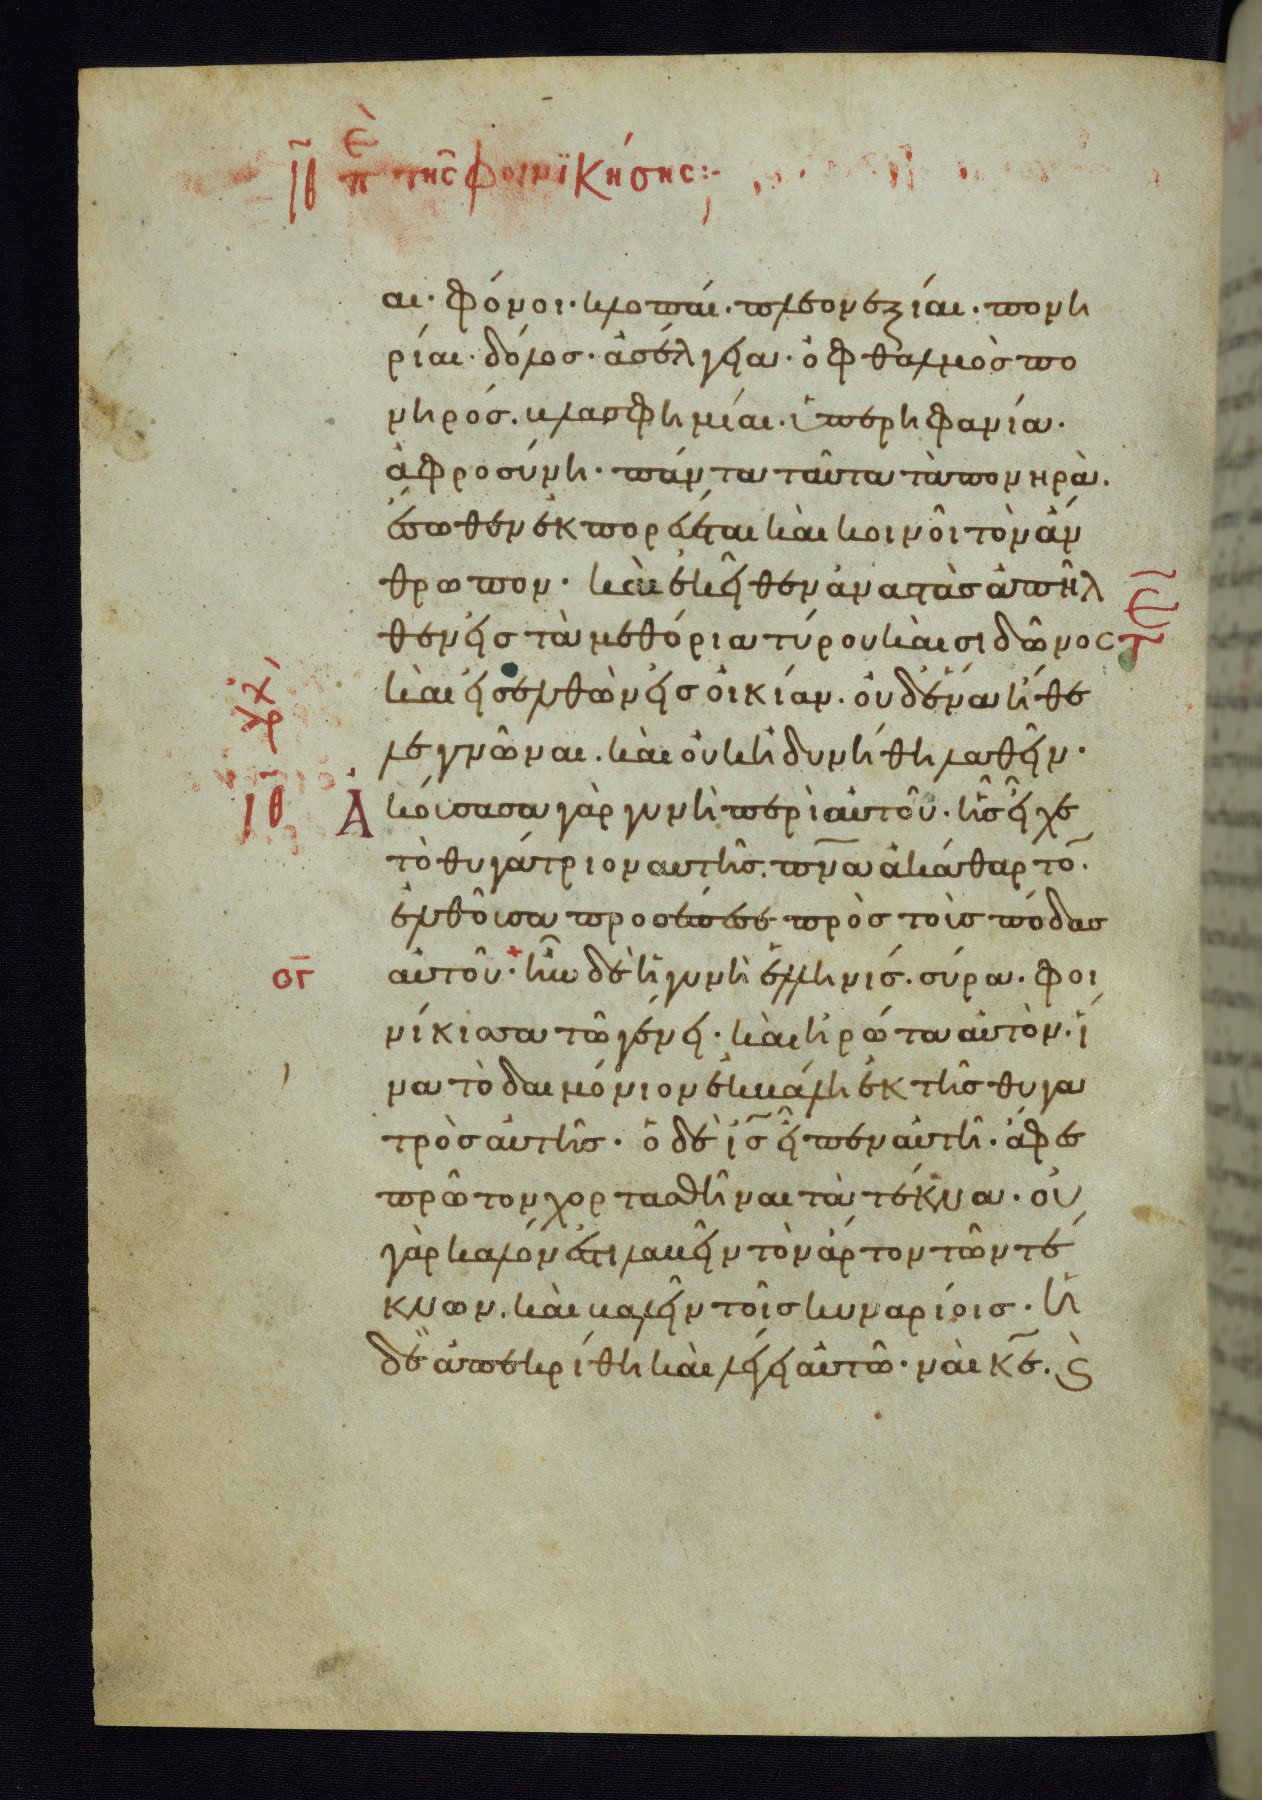 ιθ περὶ τῆς φοινϊκήσης :-
αι· φόνοι· κλοπαί· πλεονεξίαι· πονη
ρίαι· δόλος· ἀσέλγεια· ὀφθαλμὸς πο
νηρός. βλασφημίαι· ὑπερηφανία·
ἀφροσύνη· πάντα ταῦτα τὰ πονηρὰ.
ἔσωθεν ἐκπορεύεται καὶ κοινοῖ τὸν ἄν
θρωπον· καὶ ἐκεῖθεν ἀναστὰς ἀπῆλ
θεν εἰς τὰ μεθόρια τύρου καὶ σιδῶνος
καὶ εἰσελθὼν εἰς οἰκίαν. οὐδένα ἤθε
λε γνῶναι. καὶ οὐκ ἠδυνήθη λαθεῖν·
ιθ Ἀκούσασα γὰρ γυνὴ περὶ αὐτοῦ· ἧς εἶχε
τὸ θυγάτριον αυτῆς. πνᾶ ἀκάθαρτο̅·
ἐλθοῦσα προσέπεσε πρὸς τοὺς πόδας
ογ αὐτοῦ· ἦν δὲ ἡ γυνὴ ἑλληνίς. σύρα· φοι
νίκισσα τῶ γένει· καὶ ἠρώτα αὐτὸν. ἵ
να τὸ δαιμόνιον ἐκβάλη ἐκ τῆς θυγα
τρὸς αὐτῆς· ὁ δὲ ι̅ς̅ εἶπεν αὐτῆ· ἄφες
πρῶτον χορτασθῆναι τὰ τέκνα· οὐ
γὰρ καλόν ἐστι λαβεῖν τὸν ἄρτον τῶν τέ
κνων. καὶ βαλεῖν τοῖς κυναρίοις· ἡ
δὲ ἀπεκρίθη καὶ λέγει αὐτῶ· ναὶ κ̅ε̅. ϗ